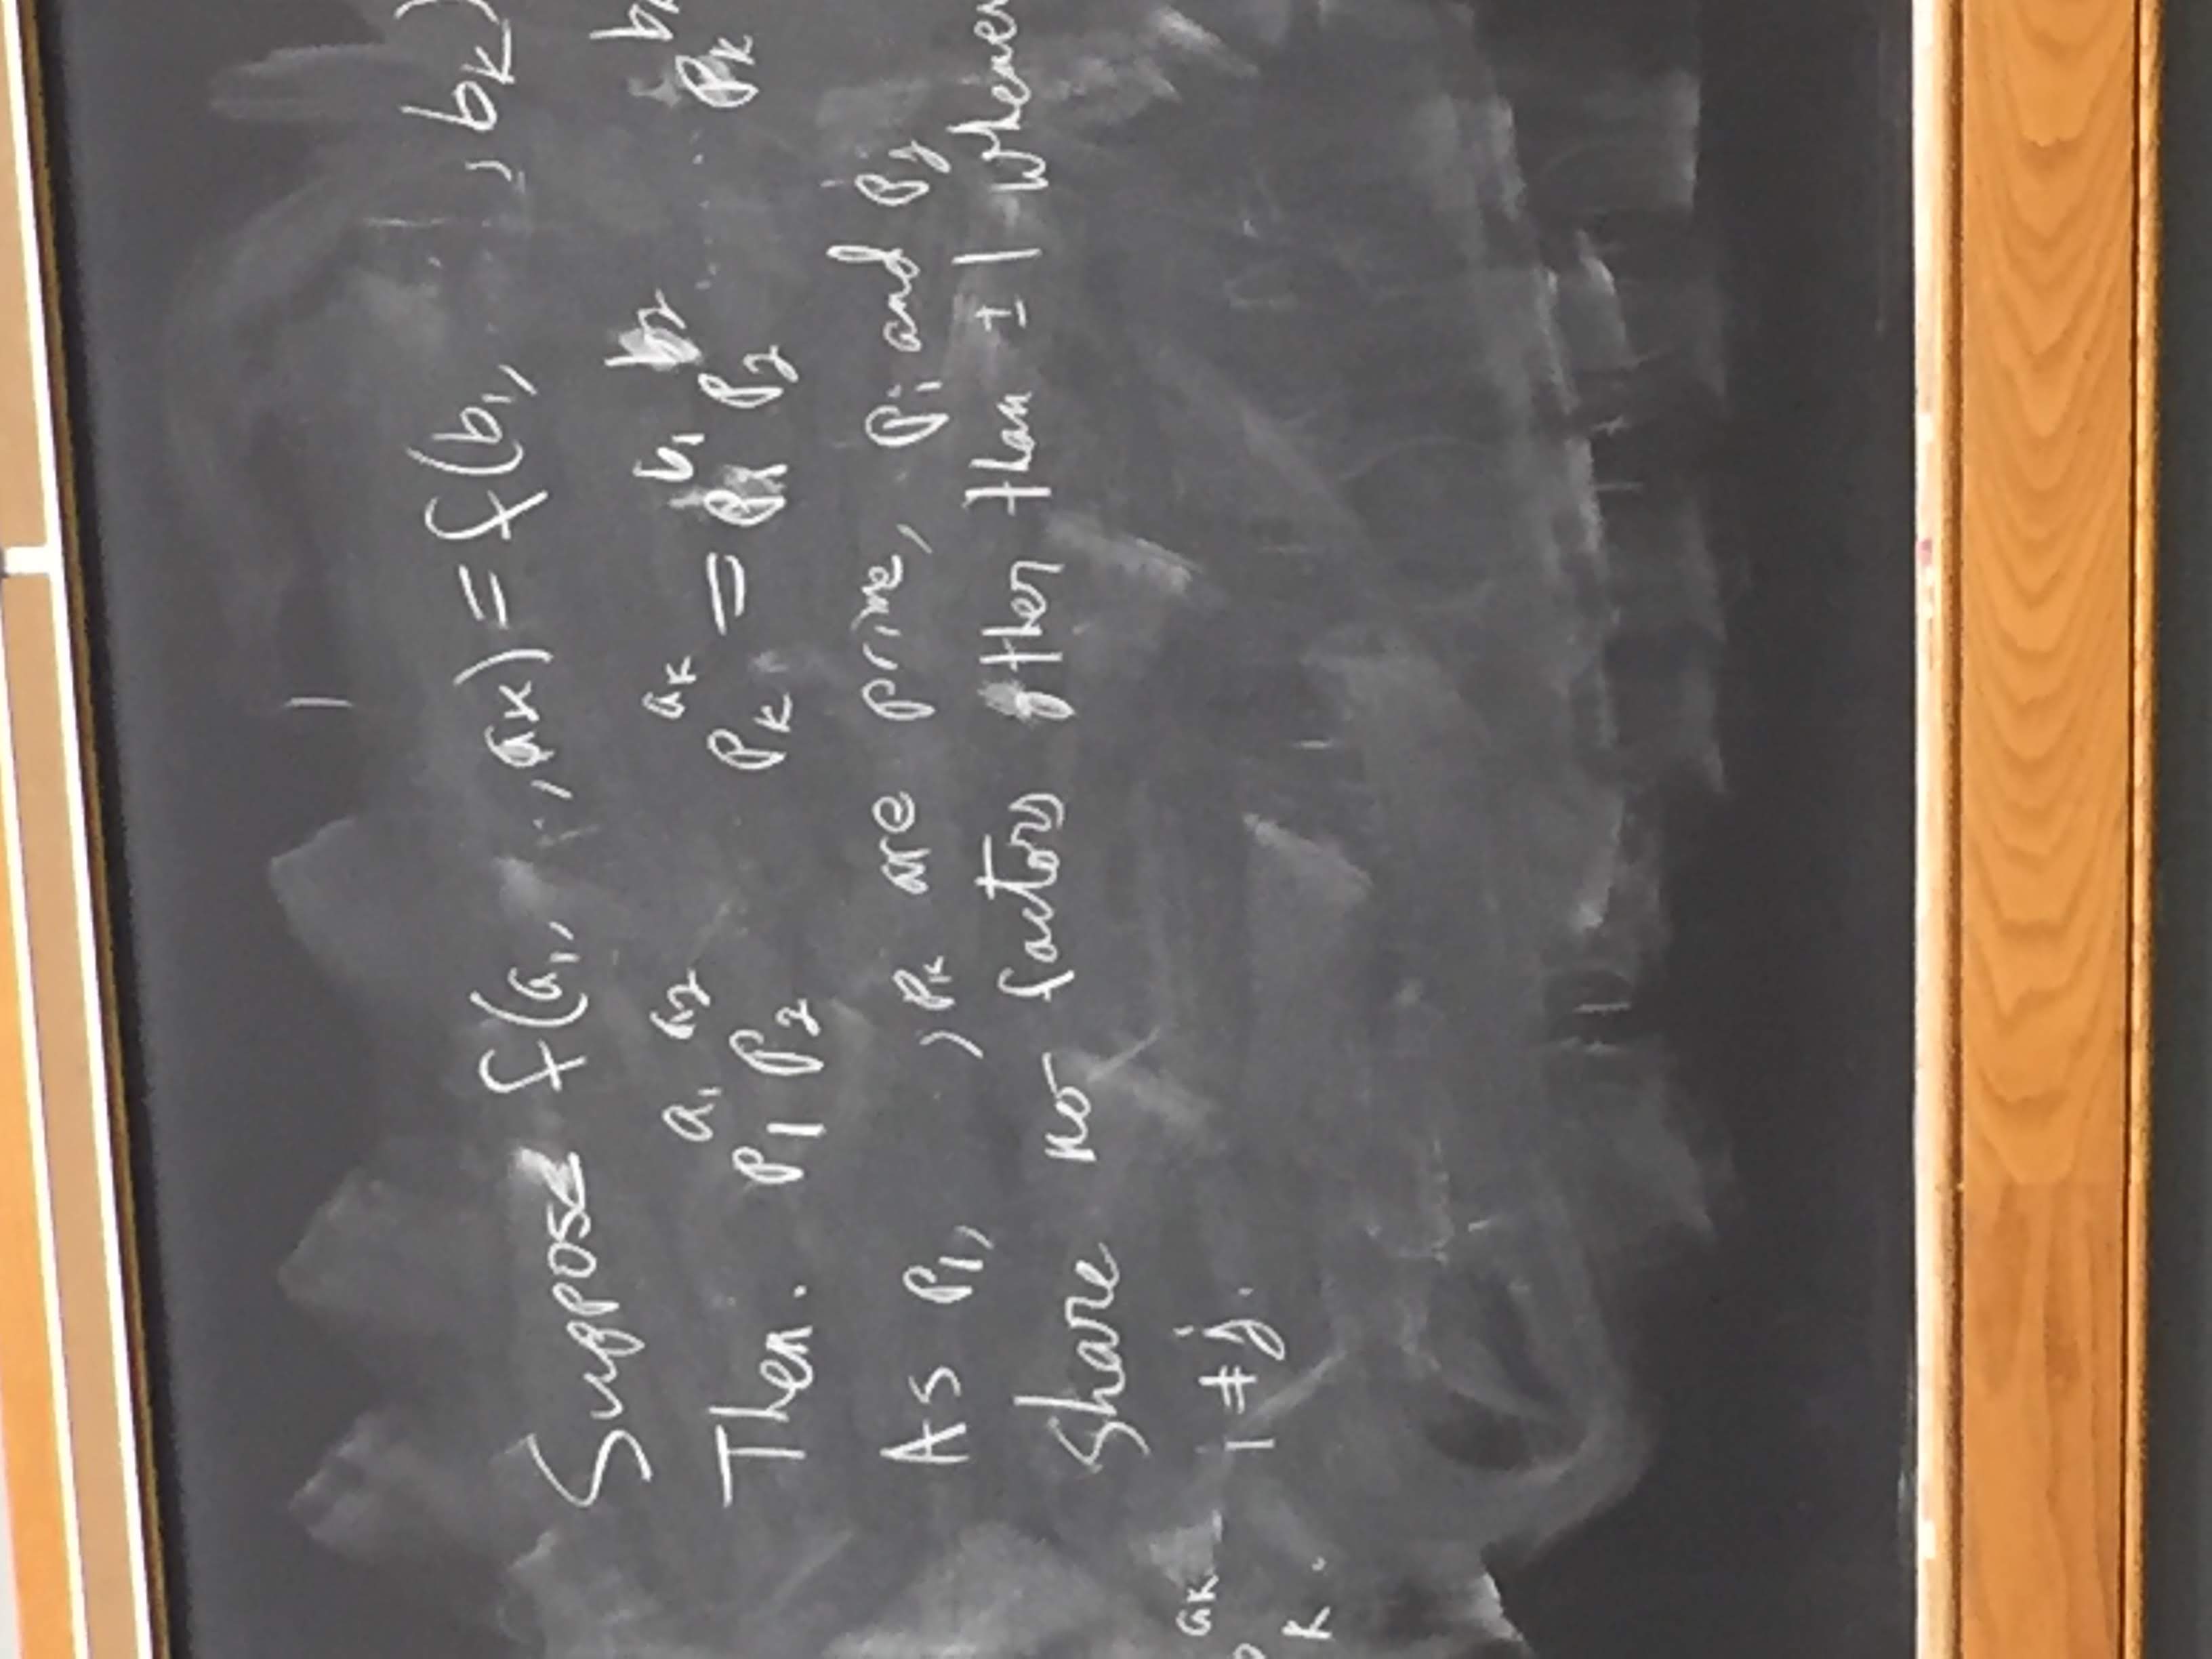 Suppose f(a₁, ..., aₖ) = f(b₁, , bₖ)
Then. p₁^a₁ p₂^a₂ pₖ^aₖ = p₁^b₁ p₂^b₂ ..... pₖ^bₖ
As p₁, , pₖ are prime, pᵢ and pⱼ
share no factors other than ± 1 whenever
aₖ
k.
i ≠ j.